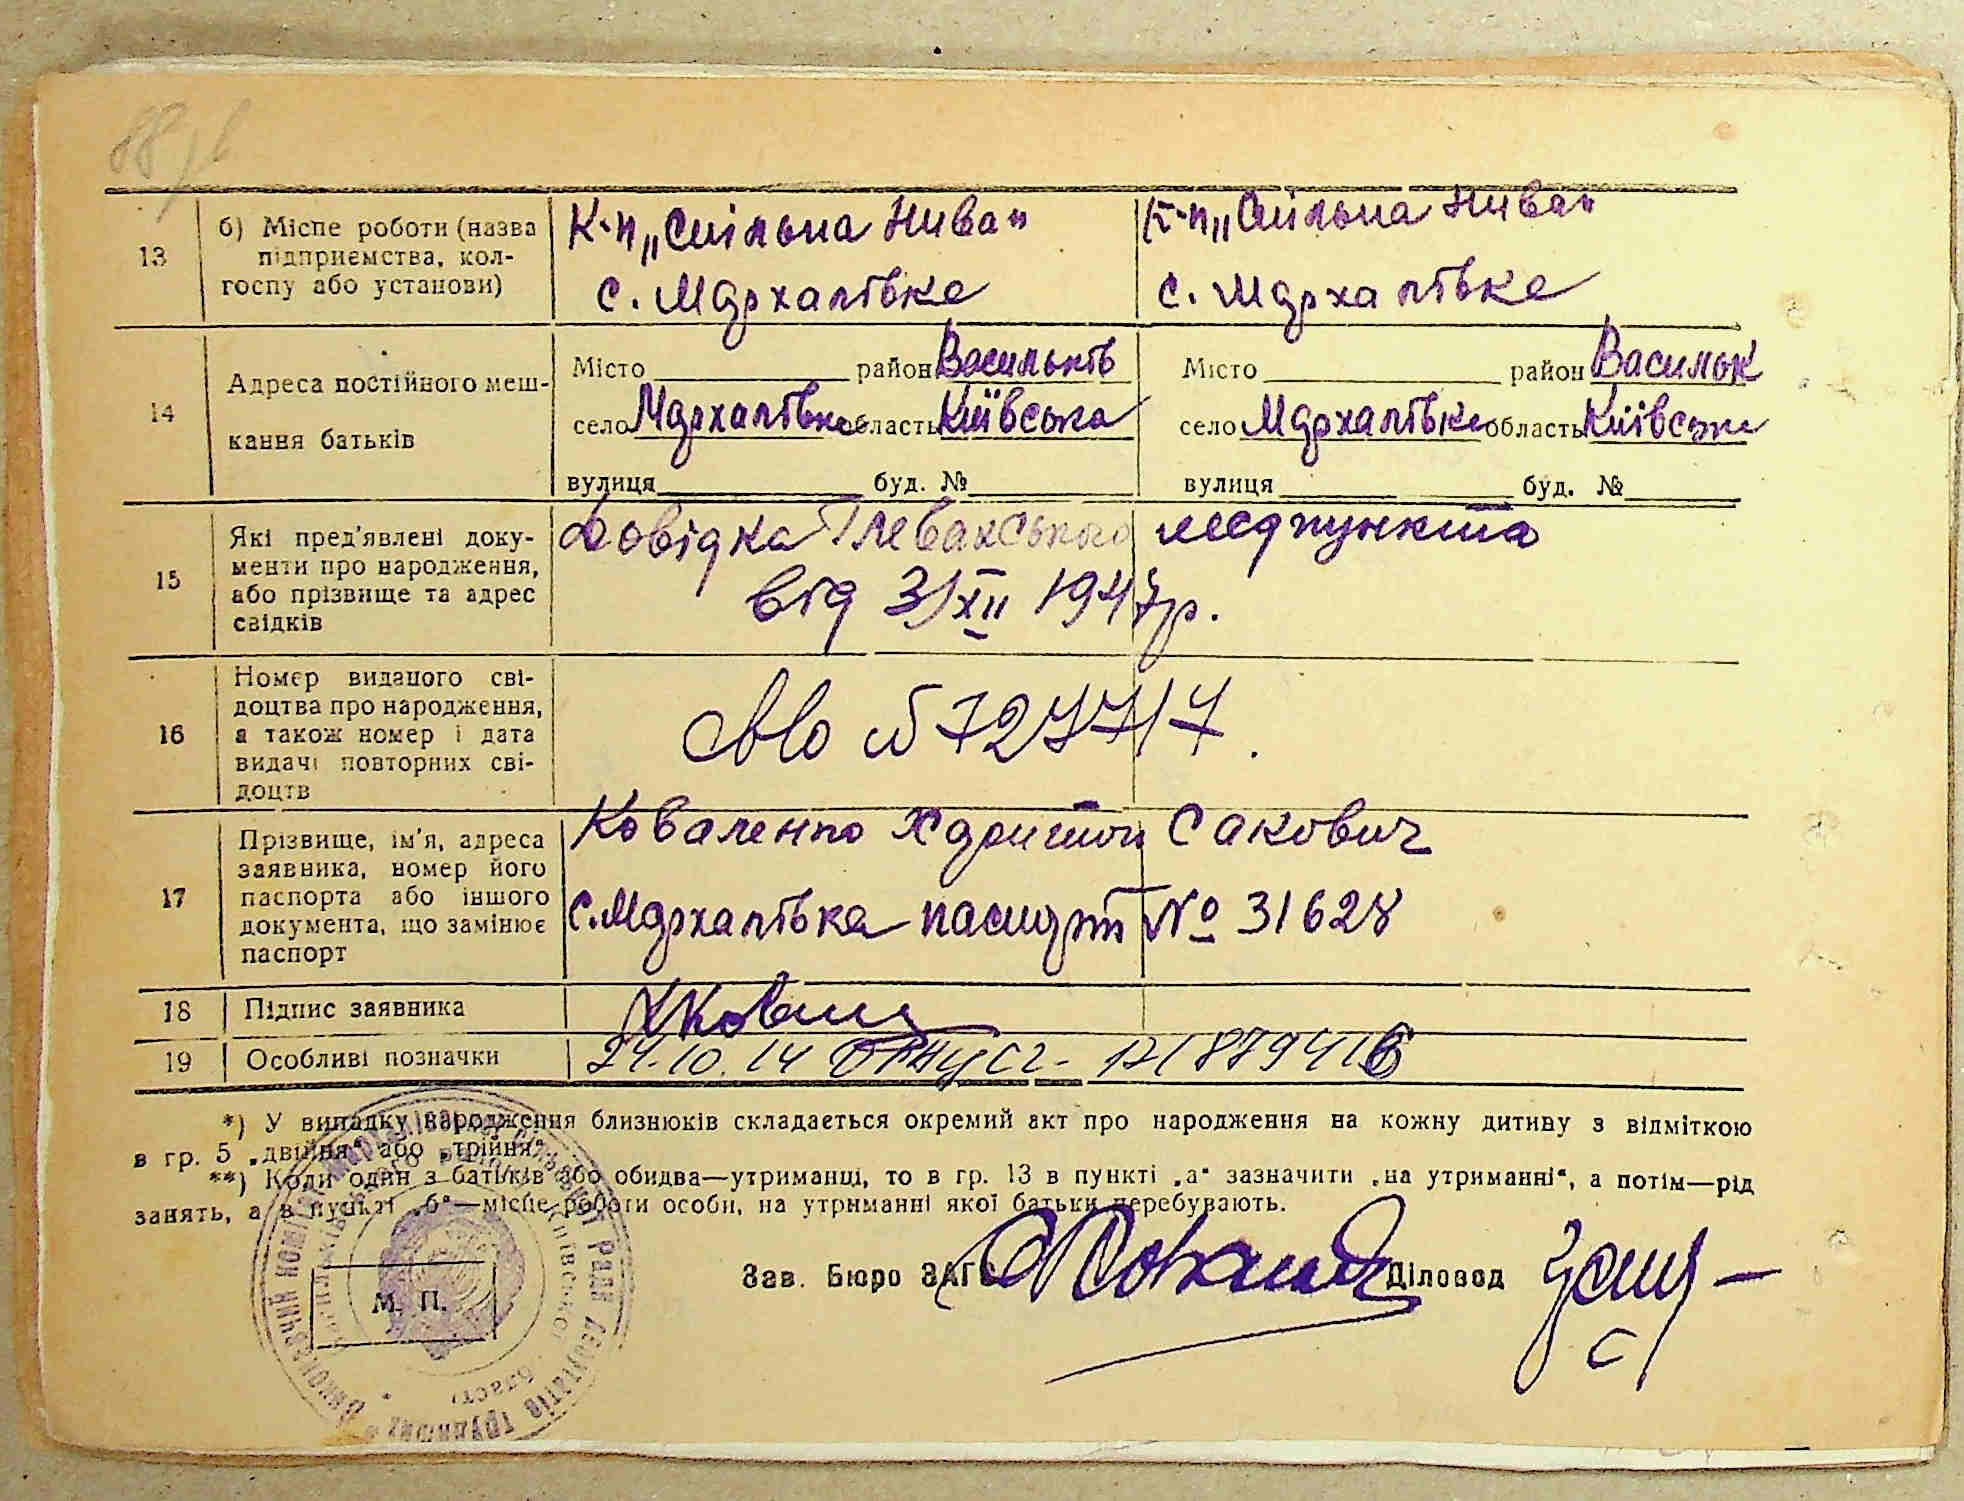 13
б) Місце роботи (назва
підприємства, кол-
госпу або установи)
К-п „Спільна Нива"
с. Мархалівка
К-п „Спільна Нива"
с. Мархалівка
14
Адреса постійного меш-
кання батьків
Місто район Васильків
село Мархалівка область Київська
вулиця буд. №
Місто район Васильк
село Мархалівка область Київська
вулиця буд. №
15
Які пред'явлені доку-
менти про народження,
або прізвище та адрес
свідків
Довідка Глевахського медпункта
від 31/XII 1947р.
16
Номер виданого сві-
доцтва про народження,
а також номер і дата
видачі повторних сві-
доцтв
727717
17
Прізвище, ім'я, адреса
заявника, номер його
паспорта або іншого
документа, що замінює
паспорт
Коваленко Харитон Сакович
с. Мархалівка паспорт № 31628
18
Підпис заявника
19
Особливі позначки
24.10.14
*) У випадку народження близнюків складається окремий акт про народження на кожну дитину з відміткою
в гр. 5 „двійня" або „трійня".
**) Коли один з батьків або обидва—утриманці, то в гр. 13 в пункті „а" зазначити „на утриманні", а потім—рід
занять, а в пункті „б"—місце роботи особи, на утриманні якої батьки перебувають.
Зав. Бюро ЗАГС
Діловод
М. П.